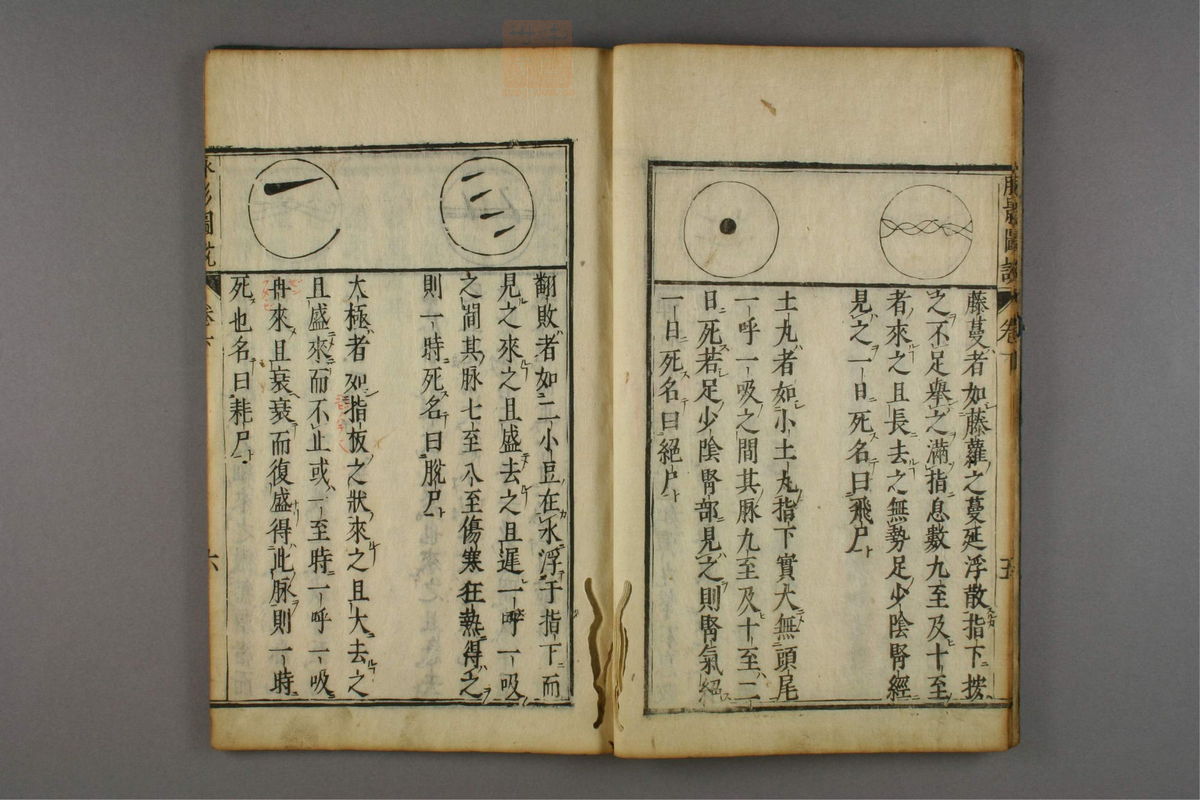 藤蔓者如藤蘿之蔓延浮散指下按
之不足擧之滿指息數九至及十至
者來之且長去之無勢足少陰腎經
見之一日死名曰飛尸
土丸者如小土丸指下實大無頭尾
一呼一吸之間其脉九至及十至二
日死若足少陰腎部見之則腎氣絕
一日死名曰絕尸
五
翻敗者如二小豆在水浮于指下而
見之來之且盛去之且遲一呼一吸
之間其脉七至八至傷寒狂熱得之
則一時死名曰脫尸
太極者如指板之狀來之且大去之
且盛來而不止或一至時一呼一吸
再來且衰衰而復盛得此脉則一時
死也名曰耗尸
六